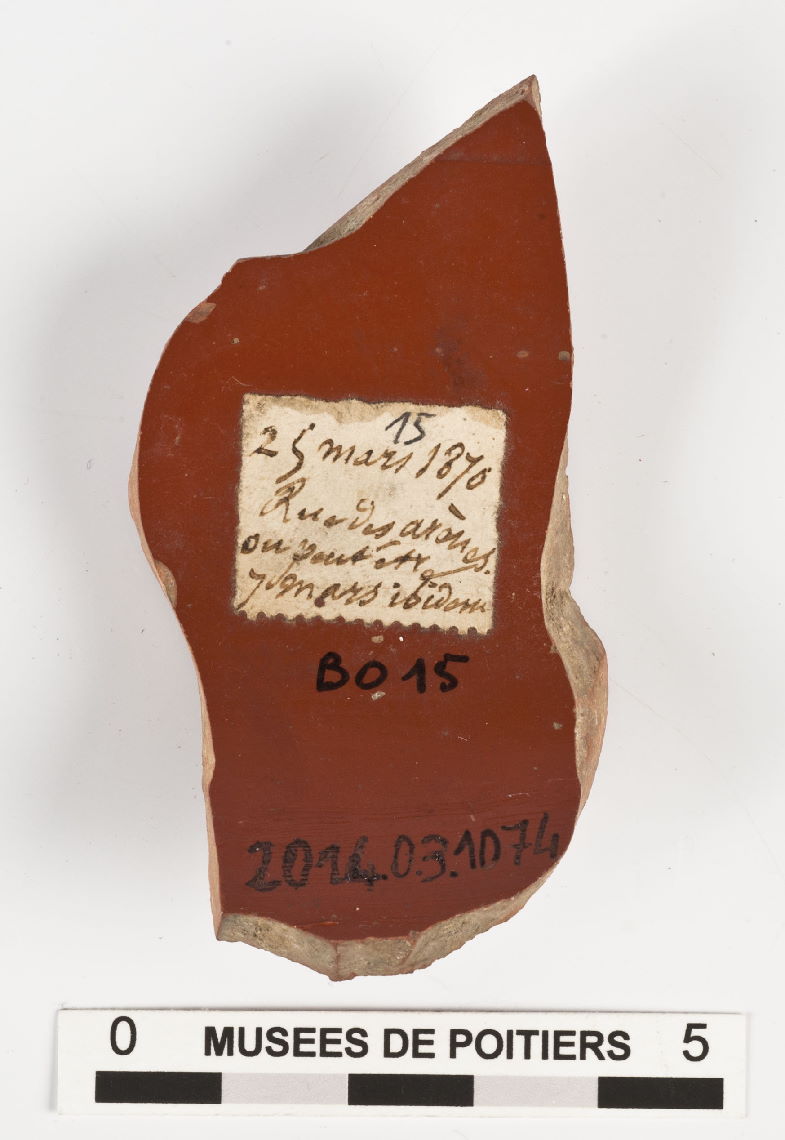 15
25 mars 1870
Rue des arènes.
ou peut être
7 mars ibidem
BO 15
2014.03.1074
0 MUSEES DE POITIERS 5